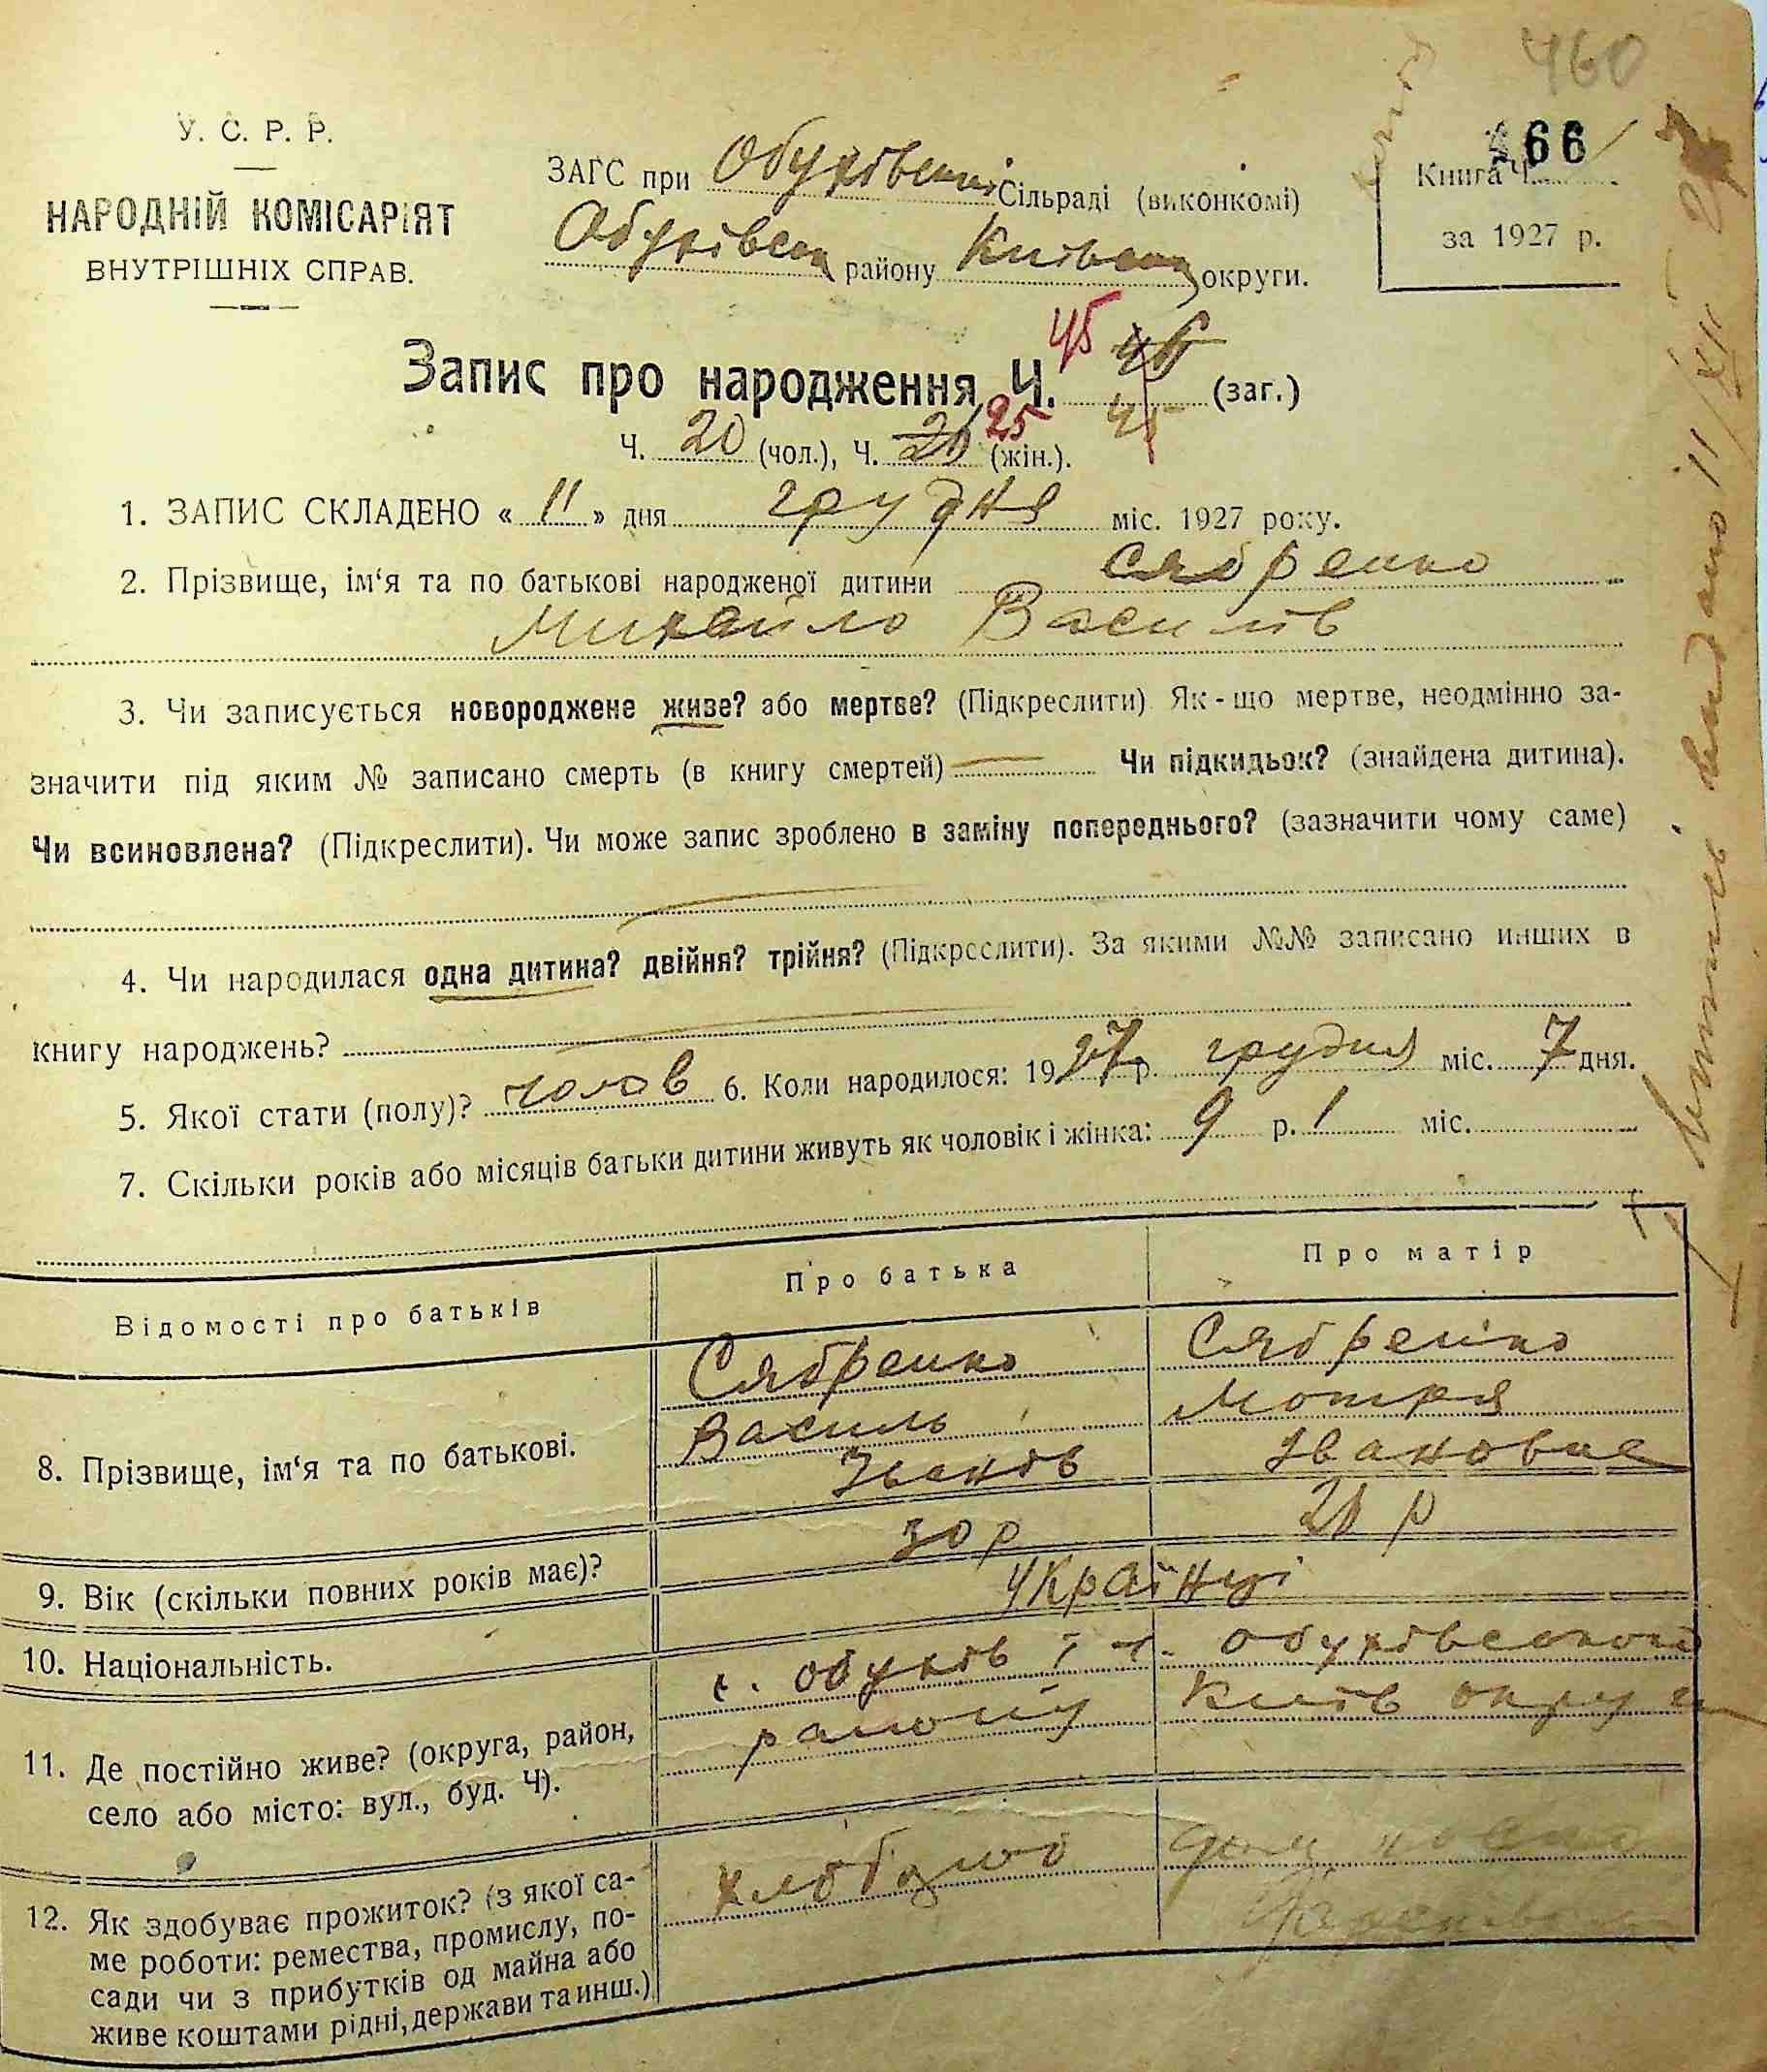 460
У. С. Р. Р.
НАРОДНІЙ КОМІСАРІЯТ
ВНУТРІШНІХ СПРАВ.
ЗАГС при Обухівській Сільраді (виконкомі)
Обухівськ району Київськ округи.
Книга Ч. 66
за 1927 р.
Запис про народження Ч. 45 46 45 (заг.)
Ч. 20 (чол.), Ч. 26 25 (жін.).
1. ЗАПИС СКЛАДЕНО « 11 » дня грудня міс. 1927 року.
2. Прізвище, ім‘я та по батькові народженої дитини Сябренко
Михайло Василів
3. Чи записується новороджене живе? або мертве? (Підкреслити) Як-що мертве, неодмінно за-
значити під яким № записано смерть (в книгу смертей) Чи підкидьок? (знайдена дитина).
Чи всиновлена? (Підкреслити). Чи може запис зроблено в заміну попереднього? (зазначити чому саме)
4. Чи народилася одна дитина? двійня? трійня? (Підкреслити). За якими №№ записано инших в
книгу народжень?
5. Якої стати (полу)? чолов 6. Коли народилося: 1927 р. грудня міс. 7 дня.
7. Скільки років або місяців батьки дитини живуть як чоловік і жінка: 9 р. 1 міс.
Відомості про батьків Про батька Про матір
8. Прізвище, ім‘я та по батькові.
Сябренко
Василь
Іванів
Сябренко
Мотря
Івановна
9. Вік (скільки повних років має)? 30 р 28 р
10. Національність. Українці
11. Де постійно живе? (округа, район,
село або місто: вул., буд. Ч).
с. Обухів Обухівського
району Київ округи
12. Як здобуває прожиток? (з якої са-
ме роботи: ремества, промислу, по-
сади чи з прибутків од майна або
живе коштами рідні, держави та инш.)
хлібороб
Виписъ видано 11/XII 27